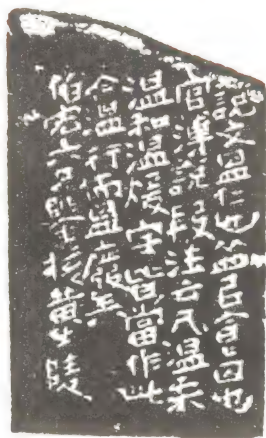 說文𥁕仁也从皿㠯食囚也
官溥說段注云凡溫柔
溫和溫煖字皆當作此
今溫行而𥁕廢矣
伯六兄黃士陵